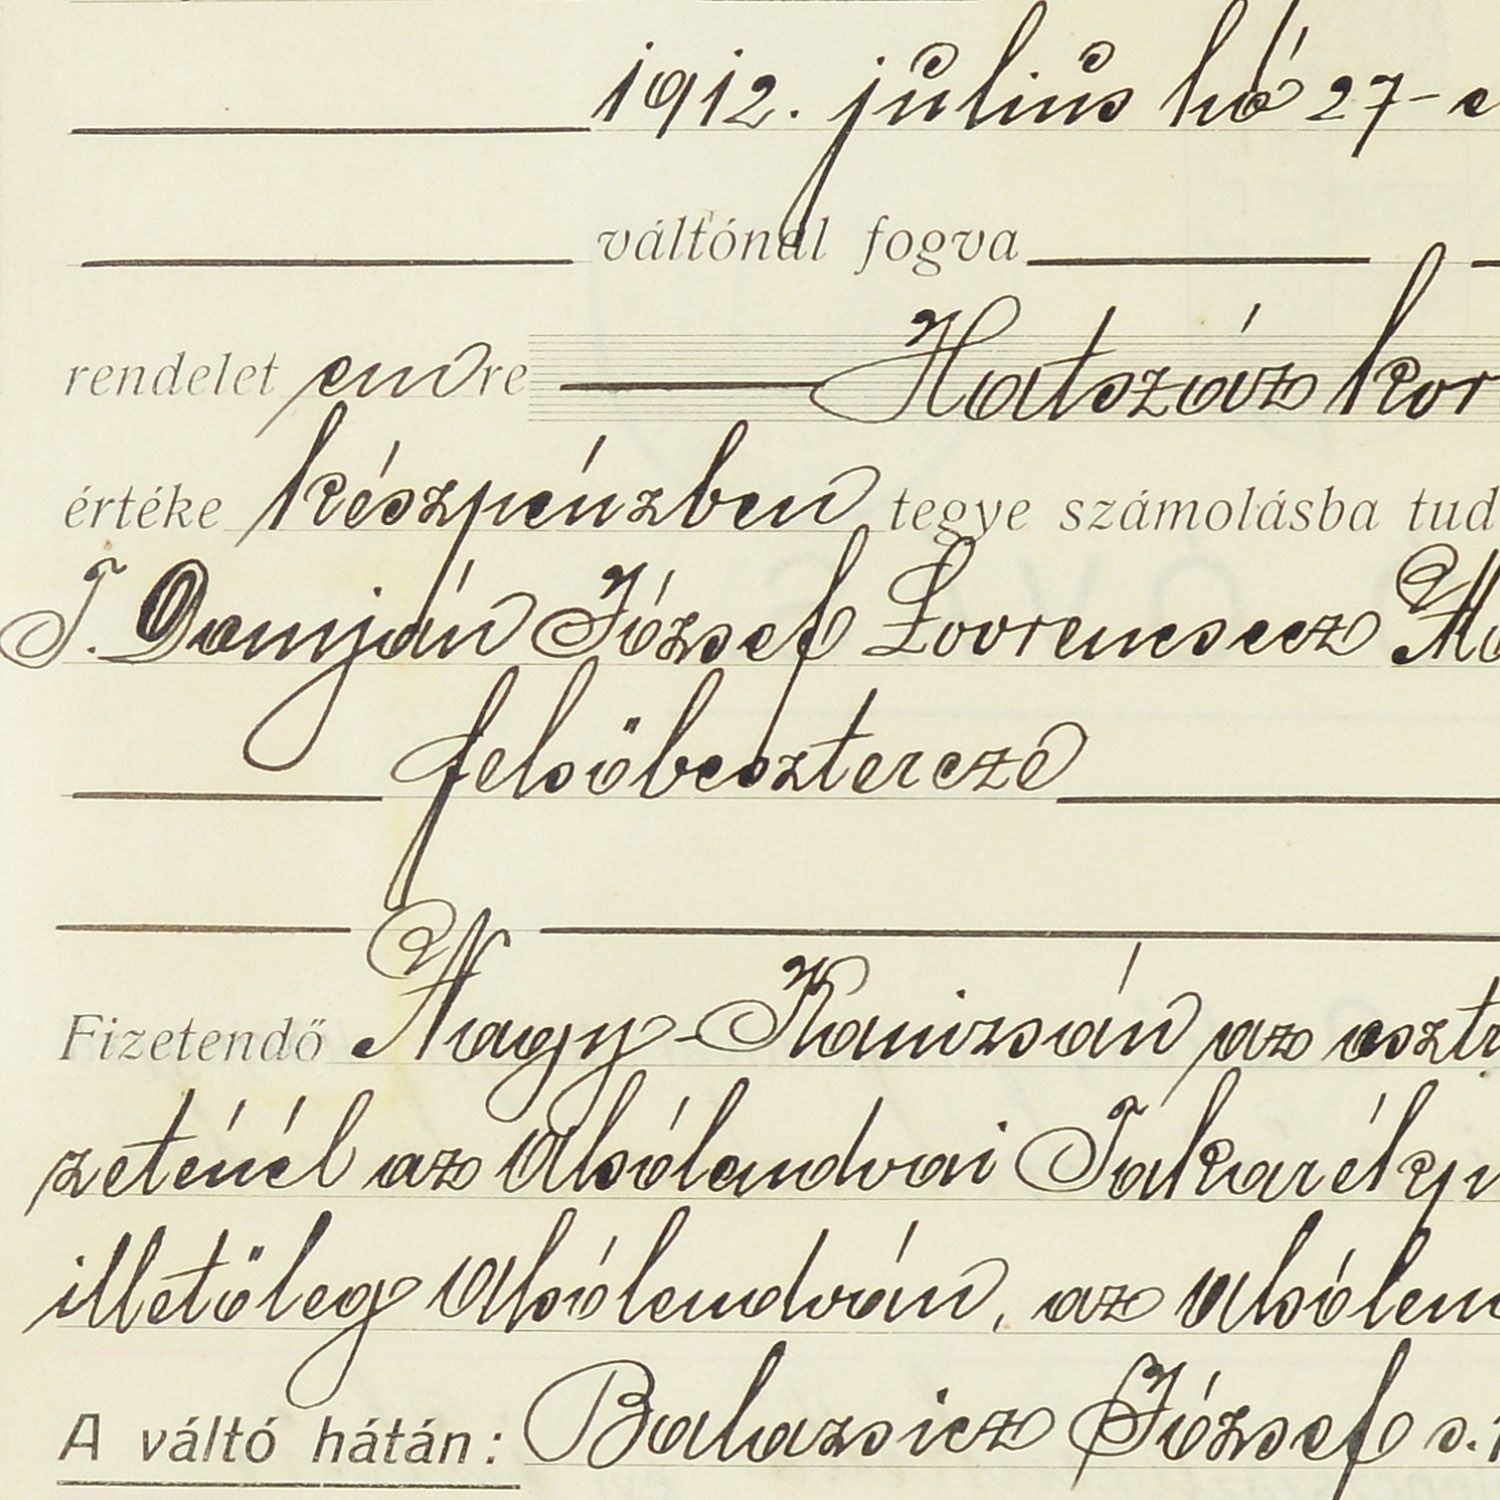 1912. július hó 27-e
váltónál fogva
rendelet en re Hatszáz kor
értéke készpénzben tegye számolásba tud
T. Domján József Lovrencsecz
felsőbesztercze
Fizetendő Nagy-Kanizsán az osztr
zeténél az Alsólendvai Takarékp
illetőleg Alsólendván, az Alsólen
A váltó hátán: Balazsicz József s.